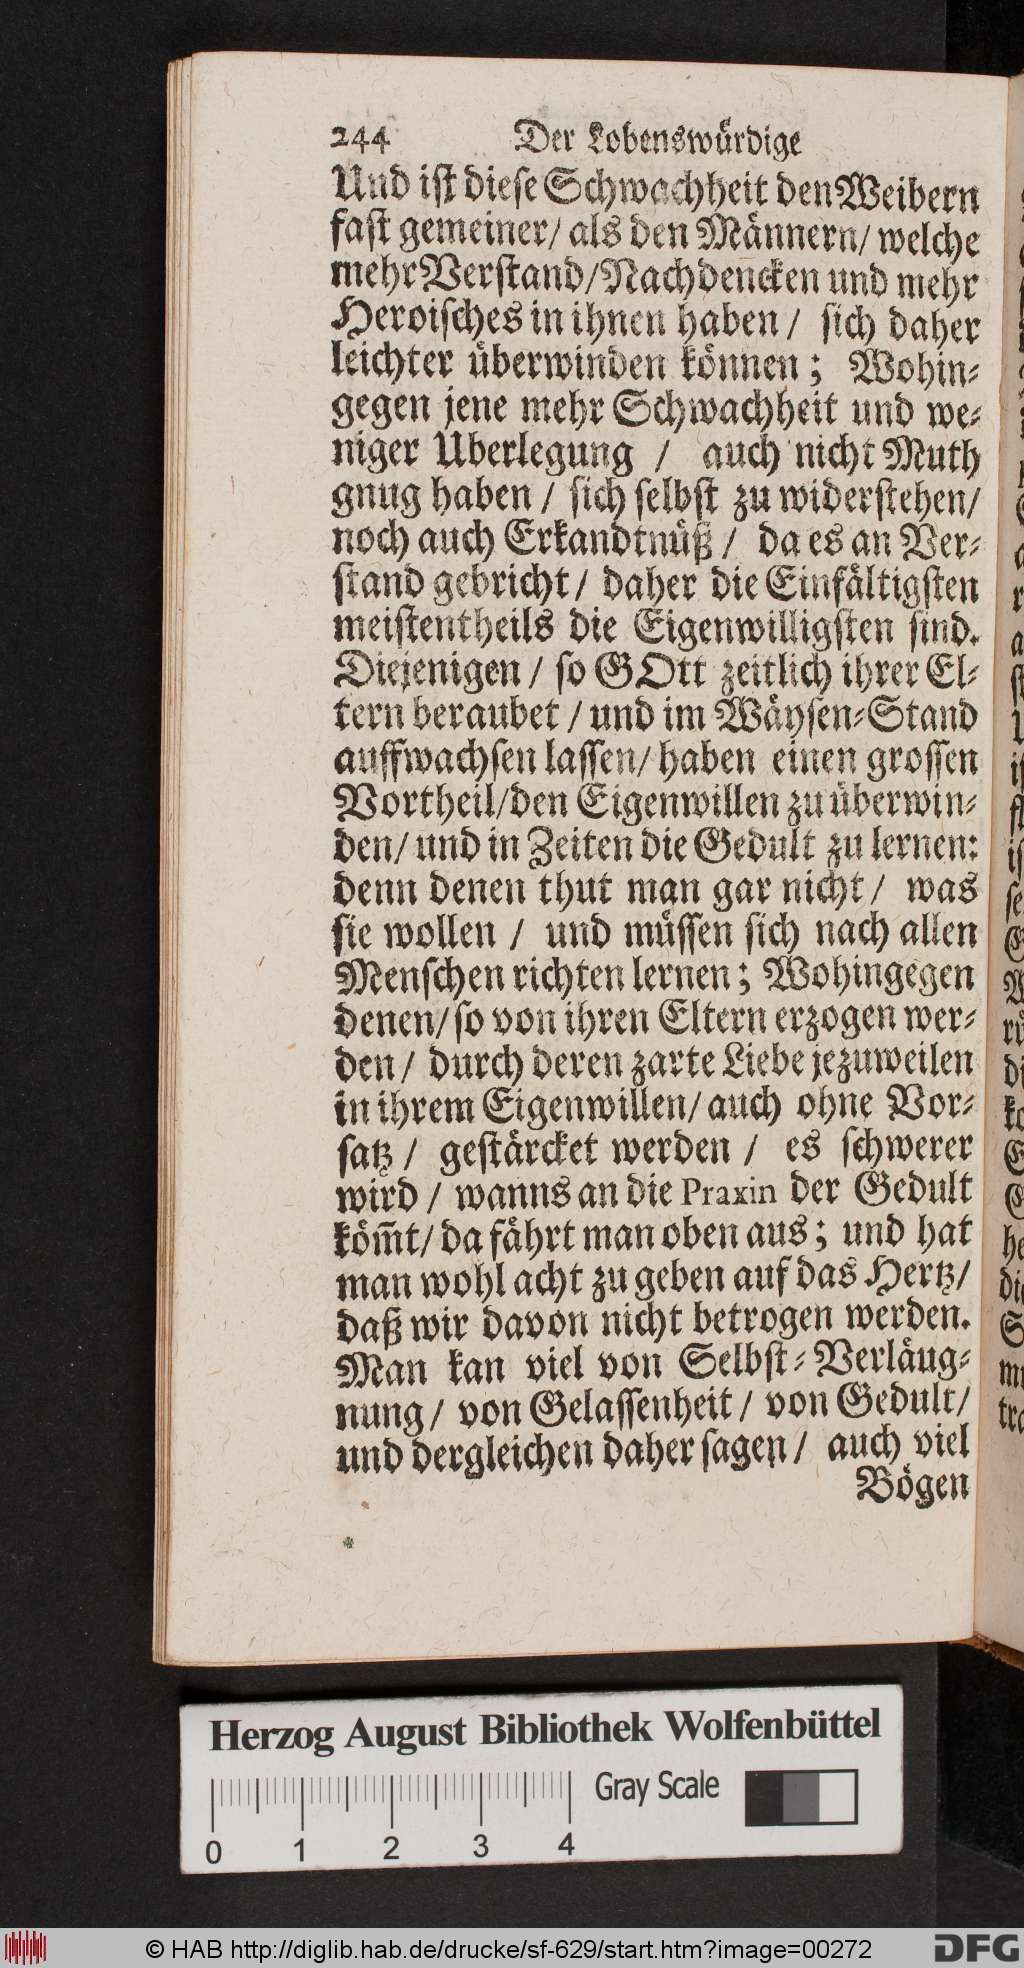 244 Der Lobenswürdige
Und ist diese Schwachheit den Weibern
fast gemeiner/ als den Männern/ welche
mehr Verstand/Nachdencken und mehr
Heroisches in ihnen haben / sich daher
leichter überwinden können; Wohin-
gegen jene mehr Schwachheit und we-
niger Uberlegung / auch nicht Muth
gnug haben / sich selbst zu widerstehen/
noch auch Erkandtnüß / da es an Ver-
stand gebricht / daher die Einfältigsten
meistentheils die Eigenwilligsten sind.
Diejenigen / so GOtt zeitlich ihrer El-
tern beraubet / und im Wäysen-Stand
auffwachsen lassen/ haben einen grossen
Vortheil/den Eigenwillen zu überwin-
den/ und in Zeiten die Gedult zu lernen:
denn denen thut man gar nicht / was
sie wollen / und müssen sich nach allen
Menschen richten lernen; Wohingegen
denen/ so von ihren Eltern erzogen wer-
den / durch deren zarte Liebe jezuweilen
in ihrem Eigenwillen/ auch ohne Vor-
satz / gestärcket werden / es schwerer
wird / wanns an die Praxin der Gedult
köm̃t/ da fährt man oben aus; und hat
man wohl acht zu geben auf das Hertz/
daß wir davon nicht betrogen werden.
Man kan viel von Selbst-Verläug-
nung/ von Gelassenheit / von Gedult/
und dergleichen daher sagen / auch viel
Bögen
Herzog August Bibliothek Wolfenbüttel
Gray Scale
0 1 2 3 4
© HAB http://diglib.hab.de/drucke/sf-629/start.htm?image=00272
DFG